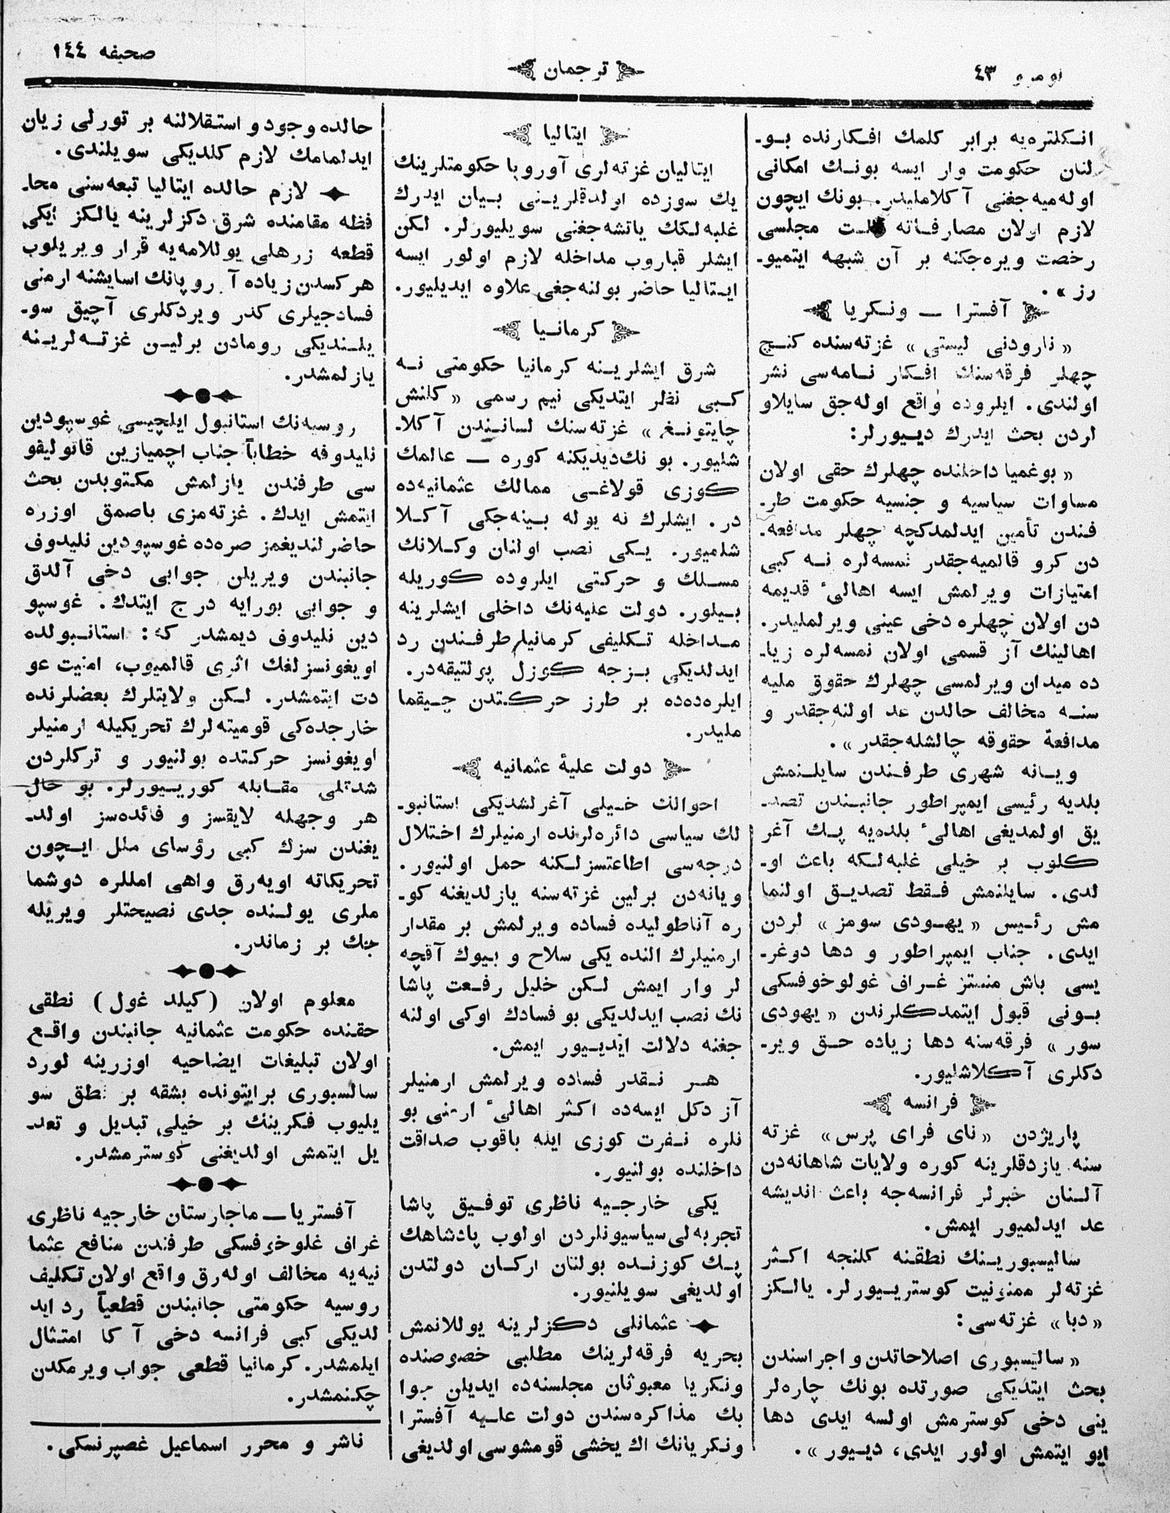 نومرو ٤٣
ترجمان
صحيفه ١٤٤
انكلتره‌يه برابر كلمك افكارنده بو-
لنان حكومت وار ايسه بونك امكانى
اوله‌ميه‌جغنى آكلامليدر. بونك ايچون
لازم اولان مصارفاته ملت مجلسى
رخصت ويره‌جكنه بر آن شبهه ايتميو-
رز».
آفسترا — ونكريا
« نارودنى ليستى » غزته‌سنده كنج
چهلر فرقه‌سنك افكار نامه‌سى نشر
اولندى. ايلروده واقع اوله‌جق سايلاو
لردن بحث ايدرك ديپورلر:
« بوغميا داخلنده چهلرك حقى اولان
مساوات سياسيه و جنسيه حكومت طر-
فندن تأمين ايدلمدكچه چهلر مدافعه-
دن كرو قالميه‌جقدر نمسه‌لره نه كبى
امتيازات ويرلمش ايسه اهالئ قديمه
دن اولان چهلره دخى عينى ويرلمليدر.
اهالينك آز قسمى اولان نمسه‌لره زيا-
ده ميدان ويرلمسى چهلرك حقوق مليه
سنه مخالف حالدن عد اولنه‌جقدر و
مدافعهٔ حقوقه چالشله‌جقدر».
ويانه شهرى طرفندن سايلنمش
بلديه رئيسى ايمپراطور جانبندن تصد-
يق اولمديغى اهالئ بلده‌يه پك آغر
كلوب بر خيلى غلبه‌لكه باعث او-
لدى. سايلنمش فقط تصديق اولنما
مش رئيس « يهودى سومز » لردن
ايدى. جناب ايمپراطور و دها دوغر-
يسى باش منستر غراف غولوخوفسكى
بونى قبول ايتمدكلرندن « يهودى
سور » فرقه‌سنه دها زياده حق وير-
دكلرى آكلاشليور.
فرانسه
پاريژدن « ناى فراى پرس » غزته
سنه يازدقلرينه كوره ولايات شاهانه‌دن
آلنان خبرلر فرانسه‌جه باعث انديشه
عد ايدلميور ايمش.
ساليسبورينك نطقنه كلنجه اكثر
غزته‌لر ممنونيت كوستريپورلر. يالكز
« دبا » غزته‌سى:
« ساليسبورى اصلاحاتدن و اجراسندن
بحث ايتديكى صورتده بونك چاره‌لر
ينى دخى كوسترمش اولسه ايدى دها
ايو ايتمش اولور ايدى، ديپور ».
ايتاليا
ايتاليان غزته‌لرى آوروپا حكومتلرينك
يك سوزده اولدقلرينى بيان ايدرك
غلبه‌لك ياتشه‌جغنى سويليورلر. لكن
ايشلر قباروب مداخله لازم اولور ايسه
ايتاليا حاضر بولنه‌جغى علاوه ايديليور.
كرمانيا
شرق ايشلرينه كرمانيا حكومتى نه
كبى نظر ايتديكى نيم رسمى « كلنش
چايتونغ » غزته‌سنك لسانندن آكلا-
شليور. بونك ديديكنه كوره — عالمك
كوزى قولاغى ممالك عثمانيه‌ده
در. ايشلرك نه يوله بينه‌جكى آكلا
شلميور. يكى نصب اولنان وكلانك
مسلك و حركتى ايلروده كوريله
بيلور. دولت عليه‌نك داخلى ايشلرينه
مداخله تكليفى كرمانيا طرفندن رد
ايدلديكى بزجه كوزل پولتيقه‌در.
ايلره‌ده‌ده بر طرز حركتدن چيقما
مليدر.
دولت عليهٔ عثمانيه
احوالك خيلى آغرلشديكى استانبو-
لك سياسى دائره‌لرنده ارمنيلرك اختلال
درجه‌سى اطاعتسزلكنه حمل اولنيور.
ويانه‌دن برلين غزته‌سنه يازلديغنه كو-
ره آناطوليده فساده ويرلمش بر مقدار
ارمنيلرك النده يكى سلاح و بيوك آقچه
لر وار ايمش لكن خليل رفعت پاشا
نك نصب ايدلديكى بو فسادك اوكى اولنه
جغنه دلالت ايديپور ايمش.
هر نقدر فساده ويرلمش ارمنيلر
آز دكل ايسه‌ده اكثر اهالئ ارمنى بو
نلره نفرت كوزى ايله باقوب صداقت
داخلنده بولنيور.
يكى خارجيه ناظرى توفيق پاشا
تجربه‌لى سياسيونلردن اولوب پادشاهك
پك كوزنده بولنان اركان دولتدن
اولديغى سويلنيور.
عثمانلى دكزلرينه يوللانمش
بحريه فرقه‌لرينك مطلبى خصوصنده
ونكريا معبوثان مجلسنده ايديلن جوا
بك مذاكره‌سندن دولت عليه آفسترا
ونكريانك اك يخشى قومشوسى اولديغى
حالده وجود و استقلالنه بر تورلى زيان
ايدلمامك لازم كلديكى سويلندى.
لازم حالده ايتاليا تبعه‌سنى محا-
فظه مقامنده شرق دكزلرينه يالكز ايكى
قطعه زرهلى يوللامه‌يه قرار ويريلوب
هركسدن زياده آوروپانك اسايشنه ارمنى
فسادجيلرى كدر ويردكلرى آچيق سو-
يلنديكى رومادن برلين غزته‌لرينه
يازلمشدر.
روسيه‌نك استانبول ايلچيسى غوسپودين
نليدوفه خطاباً جناب اچميازين قاتوليقو
سى طرفندن يازلمش مكتوبدن بحث
ايتمش ايدك. غزته‌مزى باصمق اوزره
حاضرلنديغمز صره‌ده غوسپودين نليدوف
جانبندن ويريلن جوابى دخى آلدق
و جوابى بورايه درج ايتدك. غوسپو
دين نليدوف ديمشدر كه: استانبولده
اويغونسزلغك اثرى قالميوب، امنيت عو
دت ايتمشدر. لكن ولايتلرك بعضلرنده
خارجده‌كى قوميته‌لرك تحريكيله ارمنيلر
اويغونسز حركتده بولنيور و تركلردن
شدتلى مقابله كوريپورلر. بو حال
هر وجهله لايقسز و فائده‌سز اولد-
يغندن سزك كبى رؤساى ملل ايچون
تحريكاته اويه‌رق واهى امللره دوشما
ملرى يولنده جدى نصيحتلر ويريله
جك بر زماندر.
معلوم اولان (كيلد غول) نطقى
حقنده حكومت عثمانيه جانبندن واقع
اولان تبليغات ايضاحيه اوزرينه لورد
سالسبورى برايتونده بشقه بر نطق سو
يليوب فكرينك بر خيلى تبديل و تعد-
يل ايتمش اولديغنى كوسترمشدر.
آفستريا — ماجارستان خارجيه ناظرى
غراف غلوخوفسكى طرفندن منافع عثما
نيه‌يه مخالف اوله‌رق واقع اولان تكليف
روسيه حكومتى جانبندن قطعياً رد ايد
لديكى كبى فرانسه دخى آكا امتثال
ايلمشدر. كرمانيا قطعى جواب ويرمكدن
چكنمشدر.
ناشر و محرر اسماعيل غصپرنسكى.